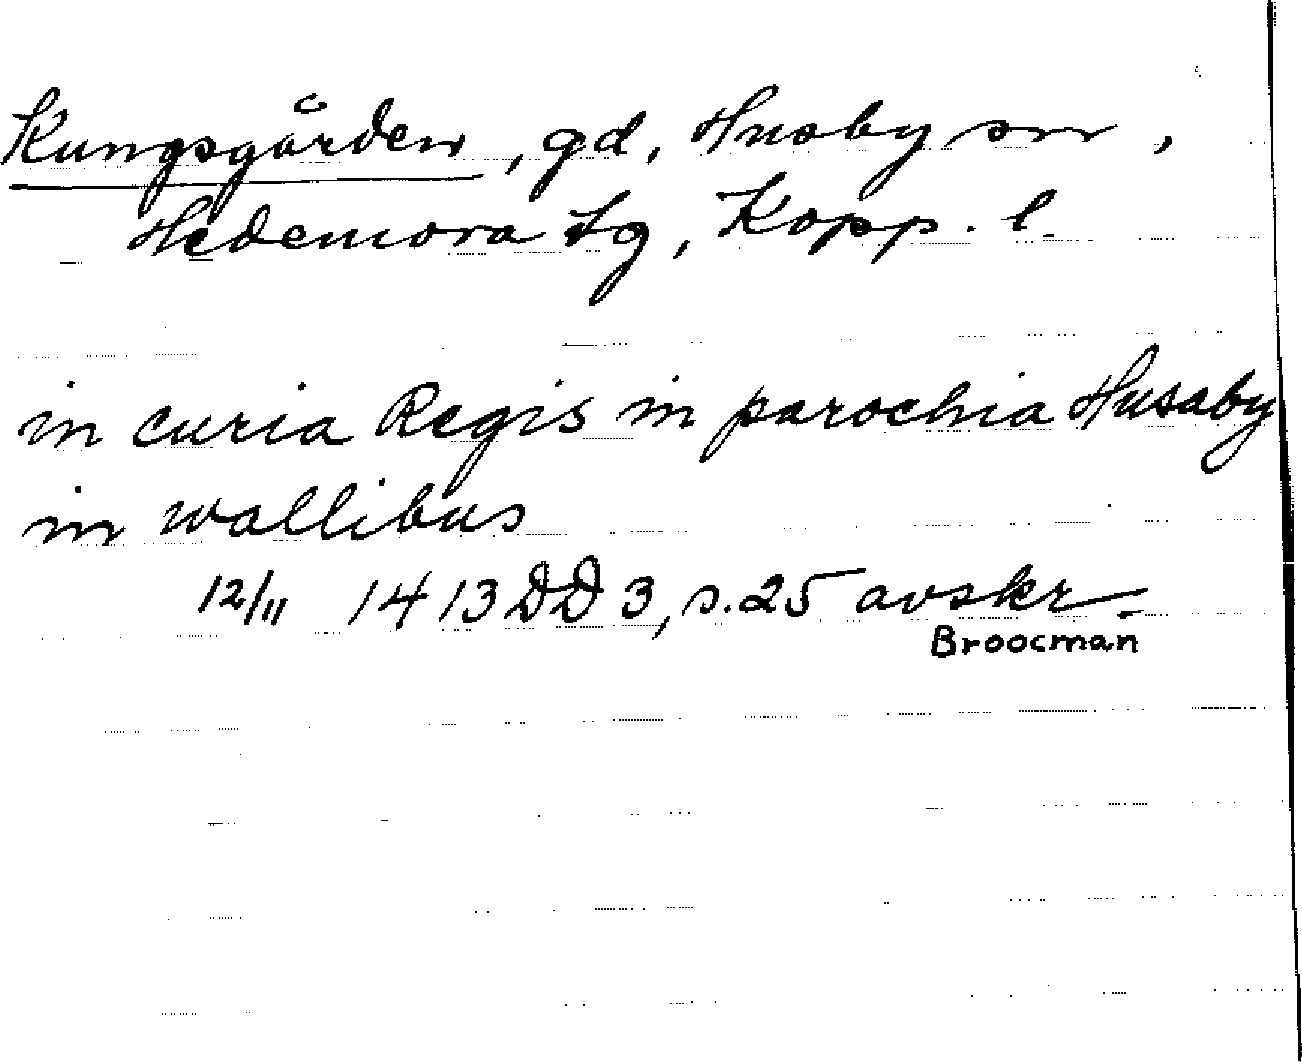 Kungsgården, gd, Husby sn,
Hedemora tg, Kopp. l.
in curia Regis in parochia Husaby
in wallibus
12/11 1413 DD 3, s. 25 avskr.
Broocman